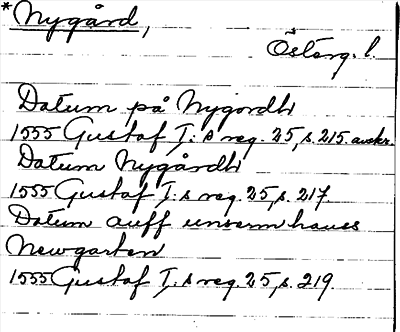 *Nygård,
Österg. l.
Datum på Nygordh
1555 Gustaf I:s reg. 25, s. 215. avskr.
Datum Nygårdh
1555 Gustaf I:s reg. 25, s. 217.
Datum auff unserm haues
Newgarten
1555 Gustaf I:s reg. 25, s. 219.